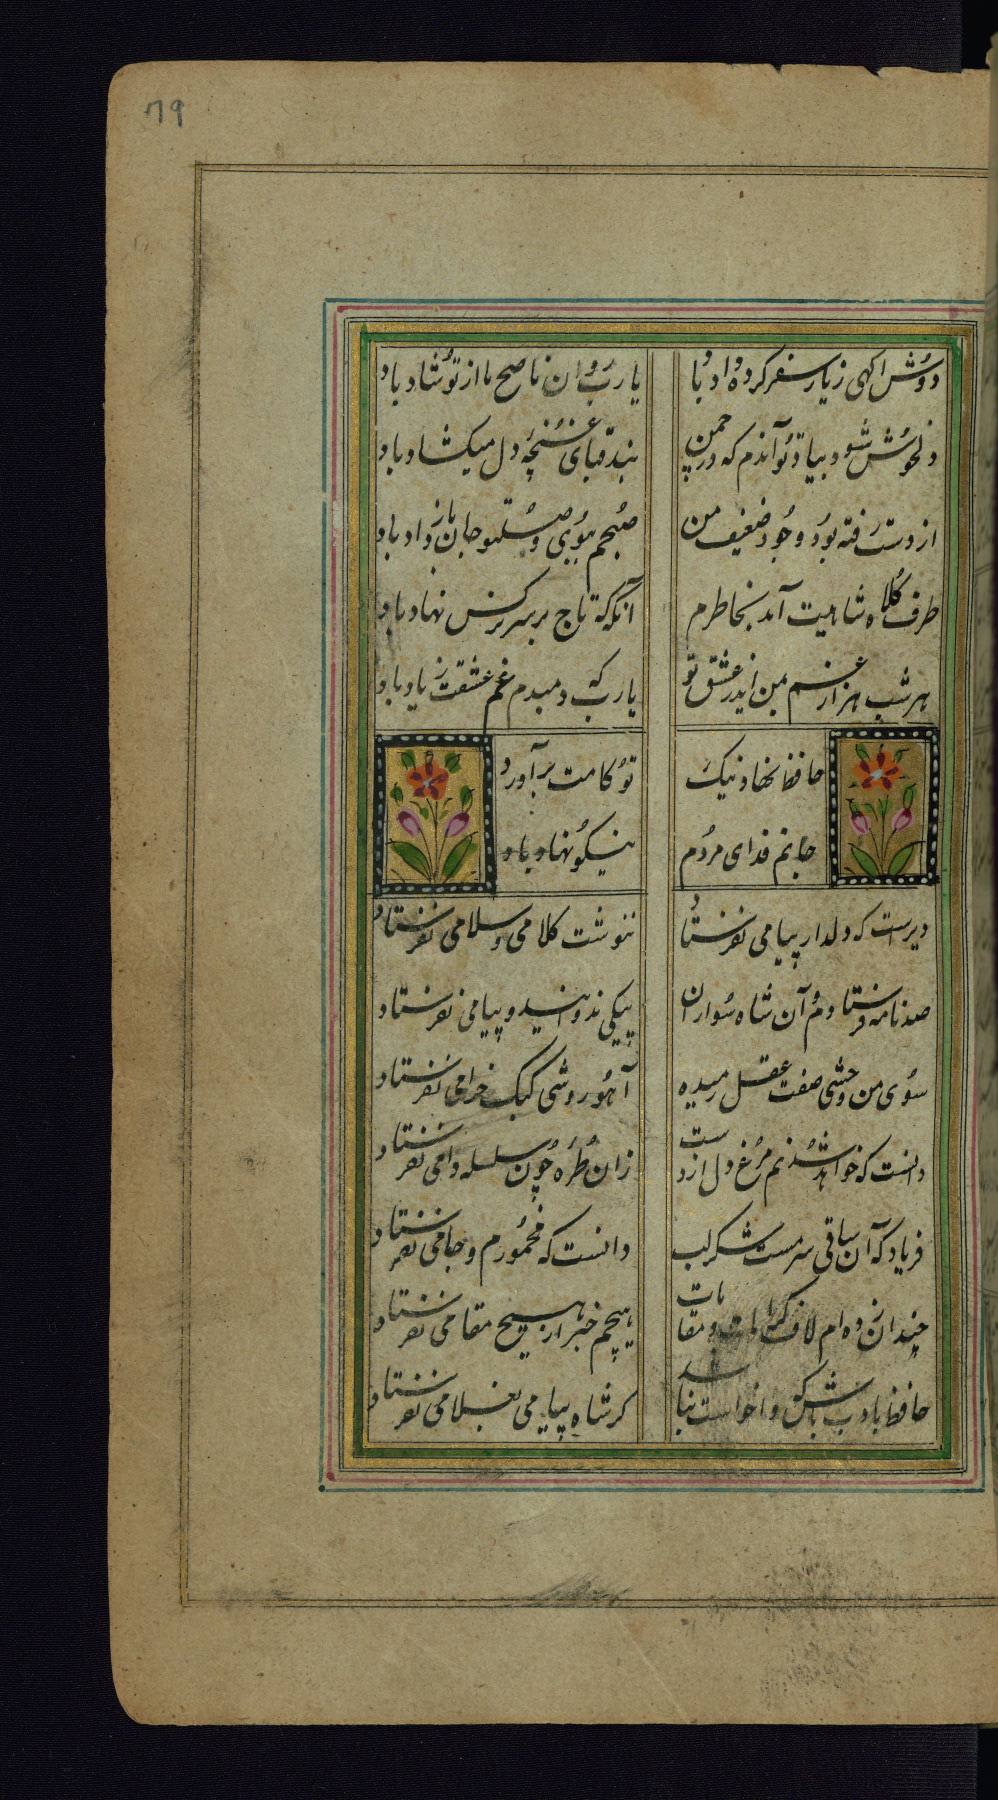 ٦٩
دوش اکهی ز یار سفر کرده داد باد یا رب روان ناصح ما از تو شاد باد
دلخوش شود بیاد تو آندم که در چمن بند قبای غنچه دل میکشاد باد
از دست رفته بود وجود ضعیف من صبحم ببوی وصلتو جان باز داد باد
طرف کلاه شاهیت آمد بخاطرم آنکه که تاج بر سر نرکس نهاد باد
هر شب هزار غم بمن آید ز عشق تو یا رب که دمبدم غم عشقت زیاد باد
حافظ نهاد نیک تو کامت برآورد
جانم فدای مردم نیکو نهاد باد
دیرست که دلدار پیامی نفرستاد ننوشت کلامی و سلامی نفرستاد
صد نامه فرستادم و آن شاه سواران پیکی ندوانید و پیامی نفرستاد
سوی من وحشی صفت عقل رمیده آهو روشی کبک خرامی نفرستاد
دانست که خواهد شدنم مرغ دل از دست زان طره چون سلسله دامی نفرستاد
فریاد که آن ساقی سرمست شکر لب دانست که مخمورم و جامی نفرستاد
چندان زده ام لاف کرامات و مقامات هیچم خبر از هیچ مقامی نفرستاد
حافظ بادب باش که واخواست نباشد کر شاه پیامی بغلامی نفرستاد